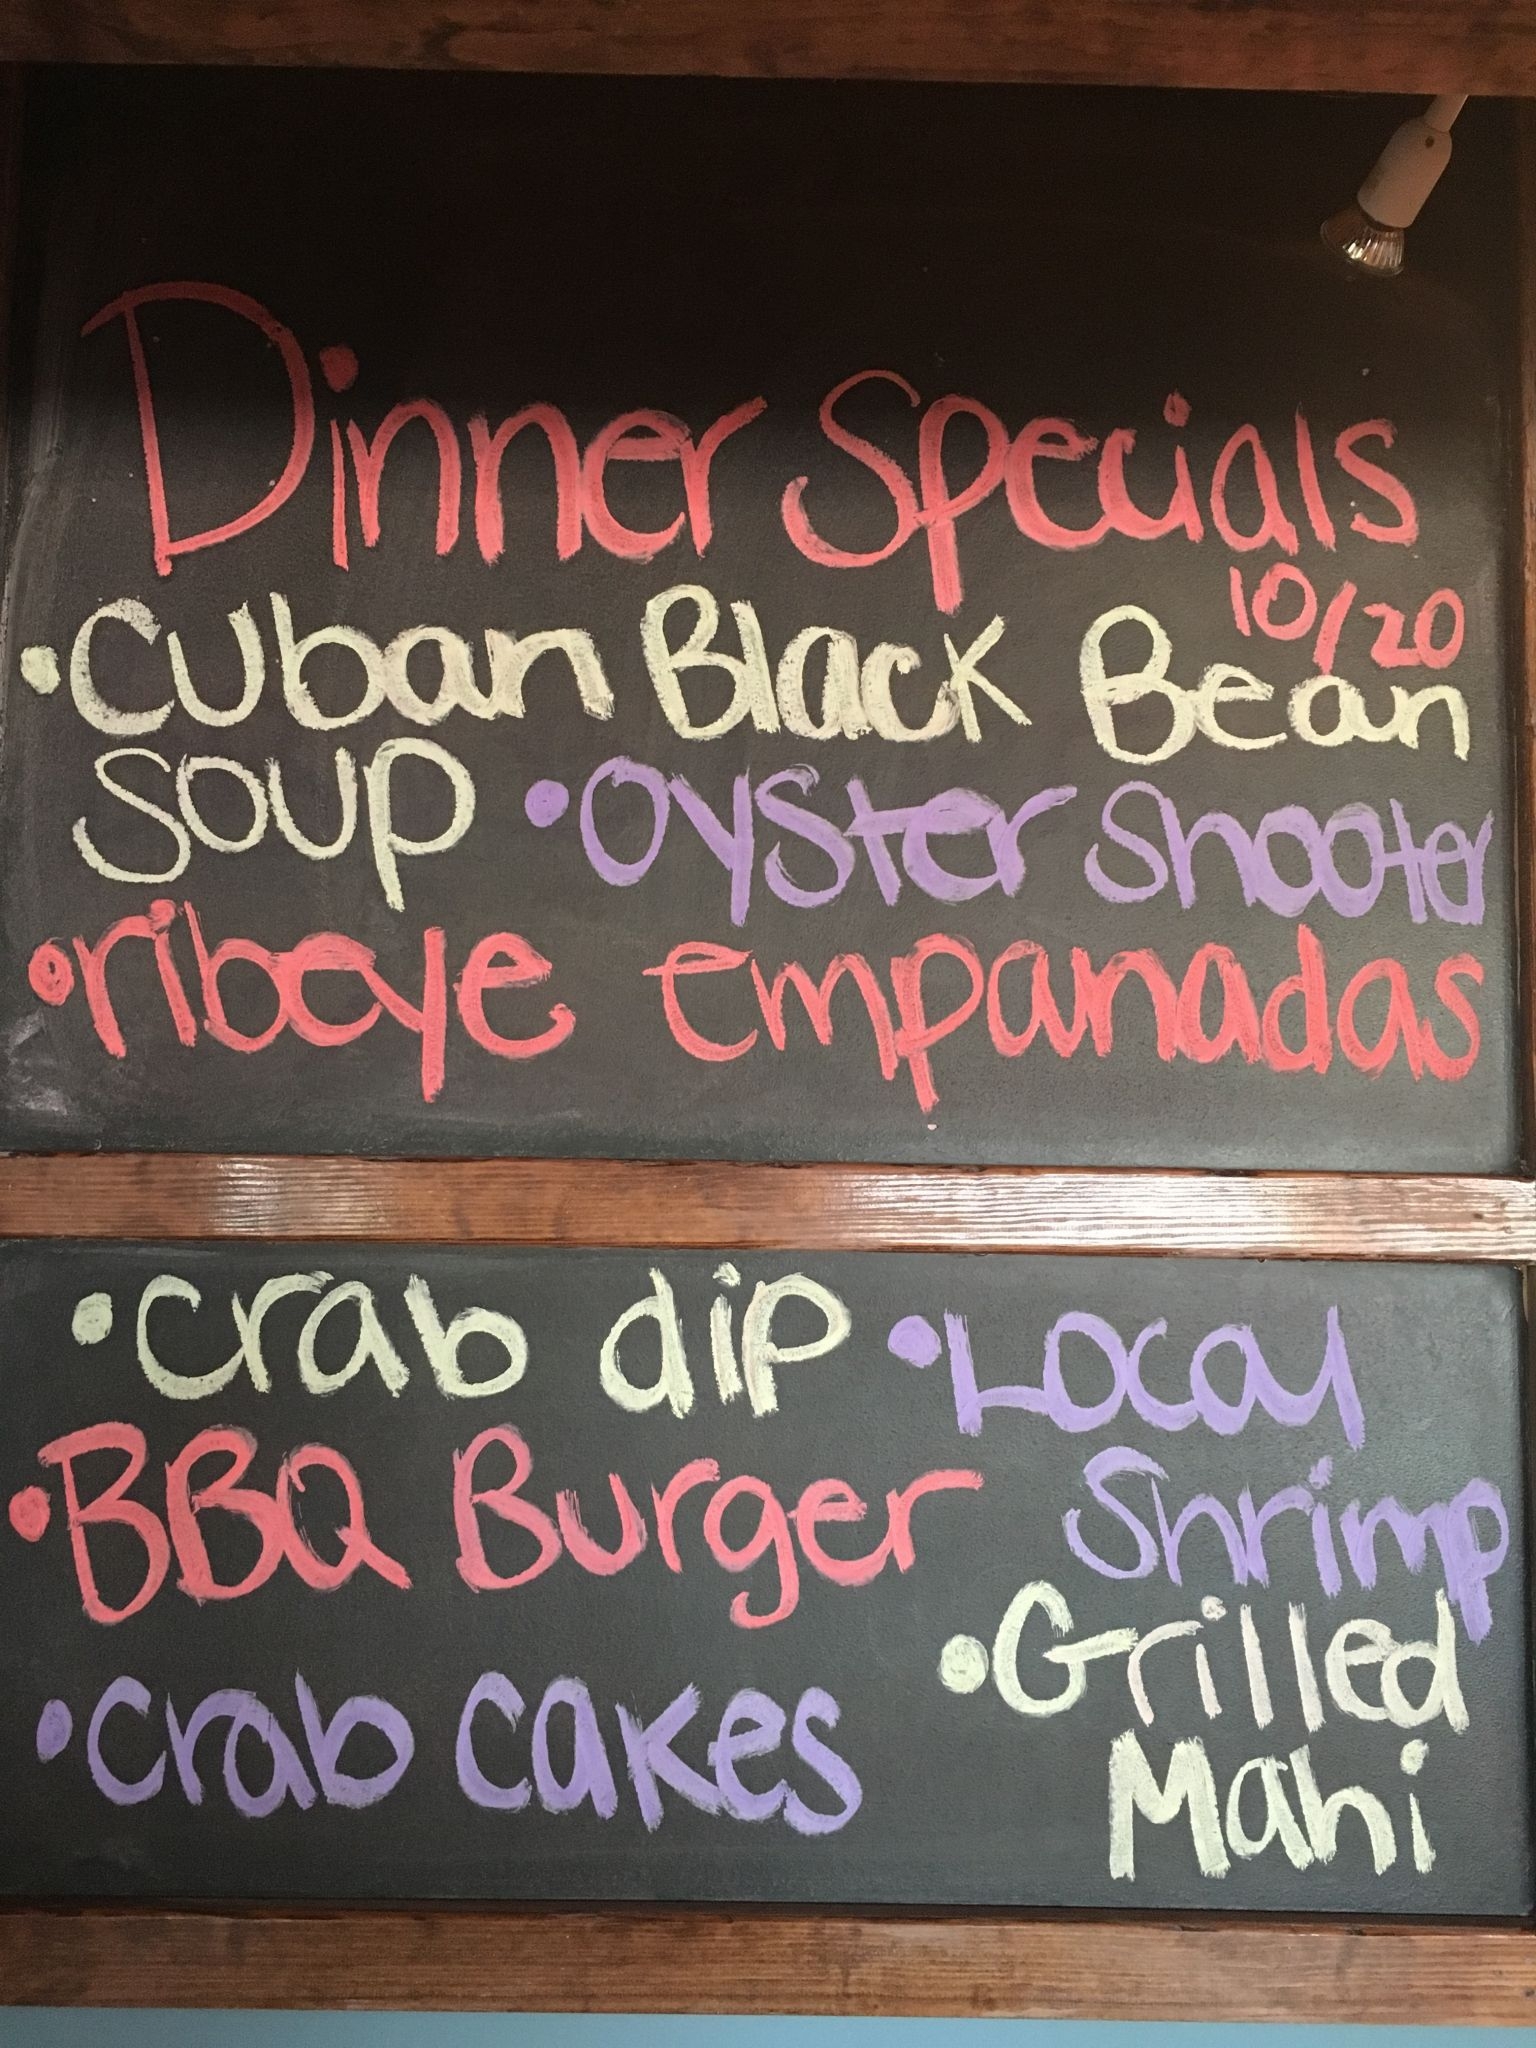 Dinner Specials
10/20
•Cuban Black Bean
Soup •Oyster Shooter
•ribeye empanadas
•Crab dip •Local
Shrimp
•BBQ Burger
•Grilled
Mahi
•Crab Cakes